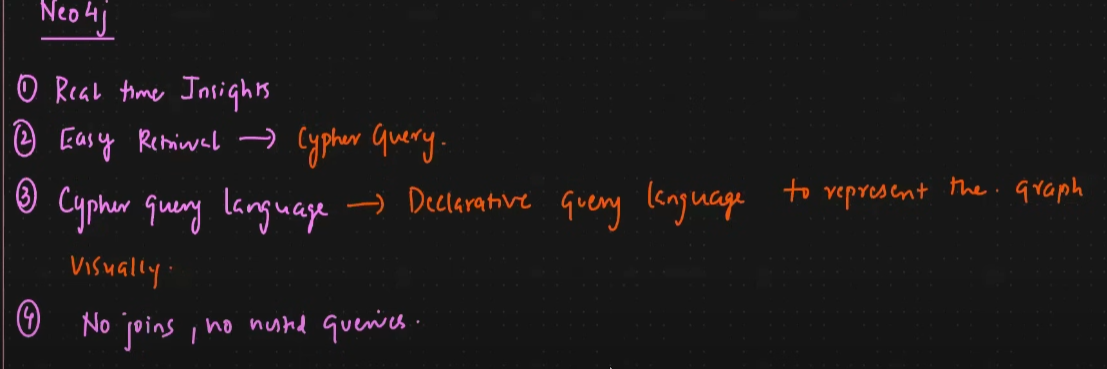 Neo4j
① Real time Insights
② Easy Retrival → Cypher Query.
③ Cypher query language → Declarative query language to represent the. graph
visually.
④ No joins, no nested queries.